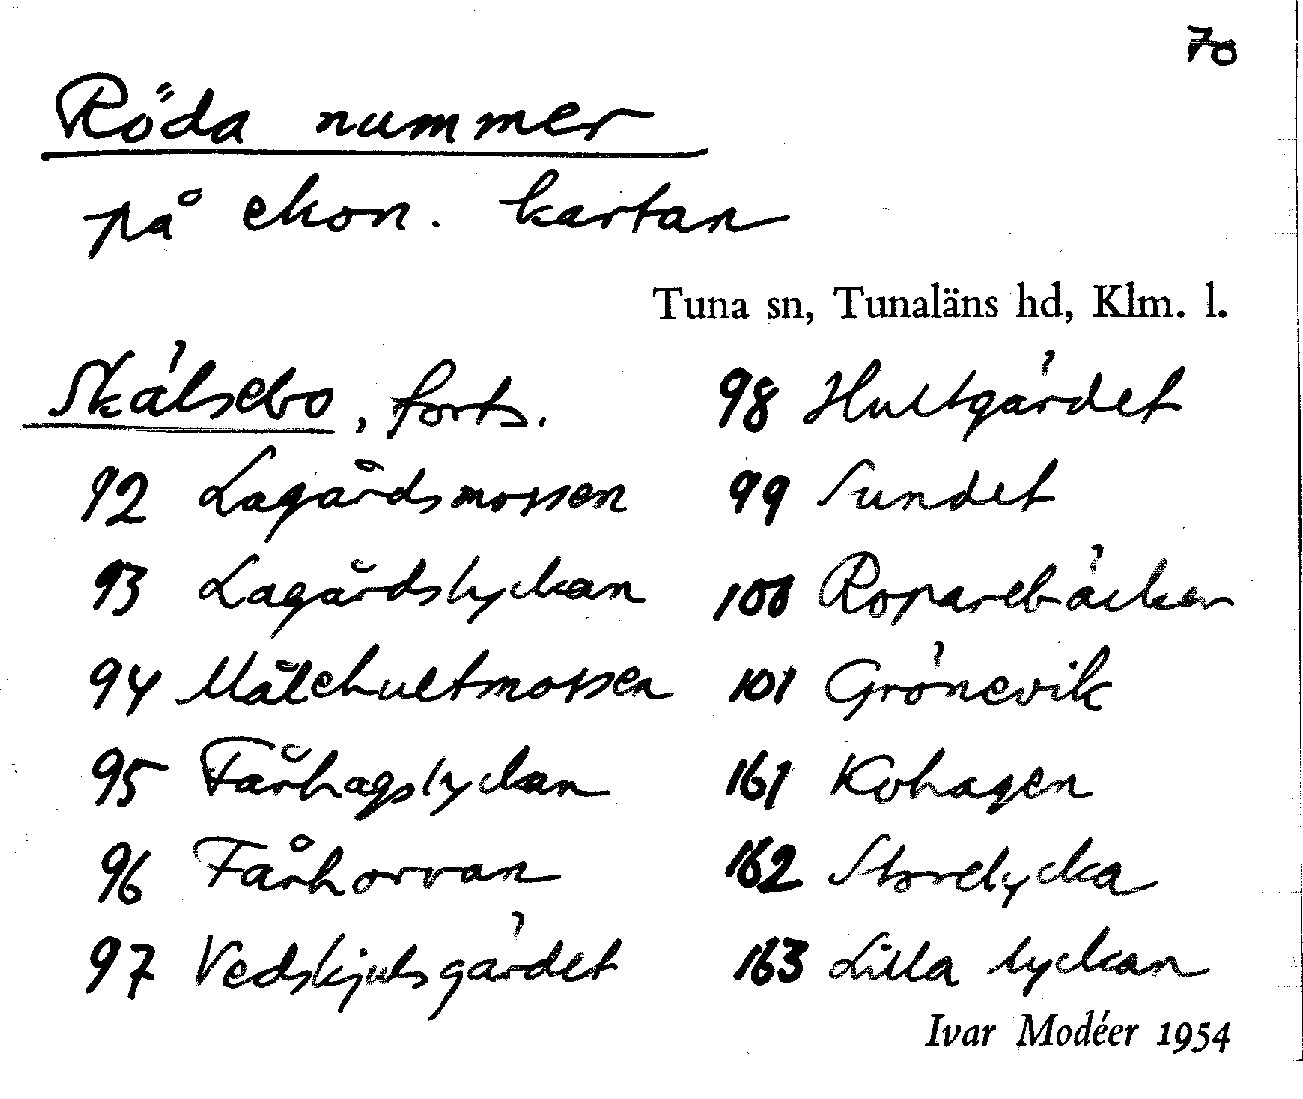 70
Röda nummer
på ekon. kartan
Tuna sn, Tunaläns hd, Klm. l.
Skälsebo, forts.
92 Lagårdsmossen
93 Lagårdslyckan
94 Målehultmossen
95 Fårhagslyckan
96 Fårhorvan
97 Vedskjulsgärdet
98 Hultgärdet
99 Sundet
100 Roparebäcken
101 Grönevik
161 Kohagen
162 Storelycka
163 Lilla lyckan
Ivar Modéer 1954